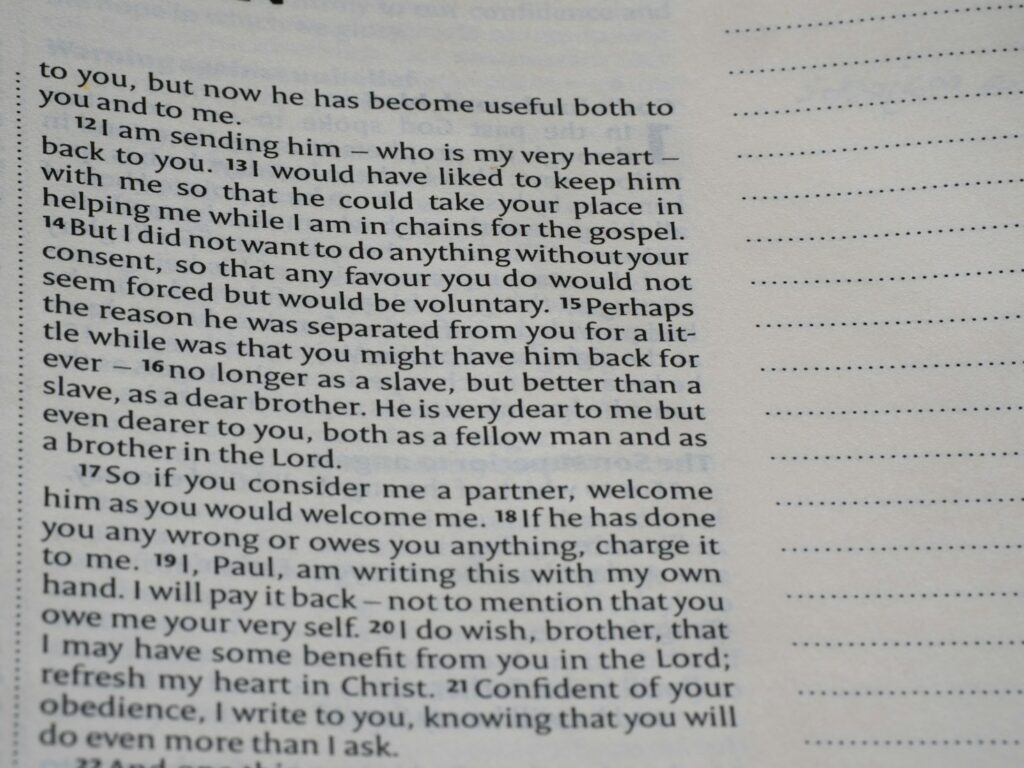 to you, but now he has become useful both to
you and to me.
12 I am sending him – who is my very heart –
back to you. 13 I would have liked to keep him
with me so that he could take your place in
helping me while I am in chains for the gospel.
14 But I did not want to do anything without your
consent, so that any favour you do would not
seem forced but would be voluntary. 15 Perhaps
the reason he was separated from you for a lit-
tle while was that you might have him back for
ever – 16 no longer as a slave, but better than a
slave, as a dear brother. He is very dear to me but
even dearer to you, both as a fellow man and as
a brother in the Lord.
17 So if you consider me a partner, welcome
him as you would welcome me. 18 If he has done
you any wrong or owes you anything, charge it
to me. 19 I, Paul, am writing this with my own
hand. I will pay it back – not to mention that you
owe me your very self. 20 I do wish, brother, that
I may have some benefit from you in the Lord;
refresh my heart in Christ. 21 Confident of your
obedience, I write to you, knowing that you will
do even more than I ask.
22 And one thing